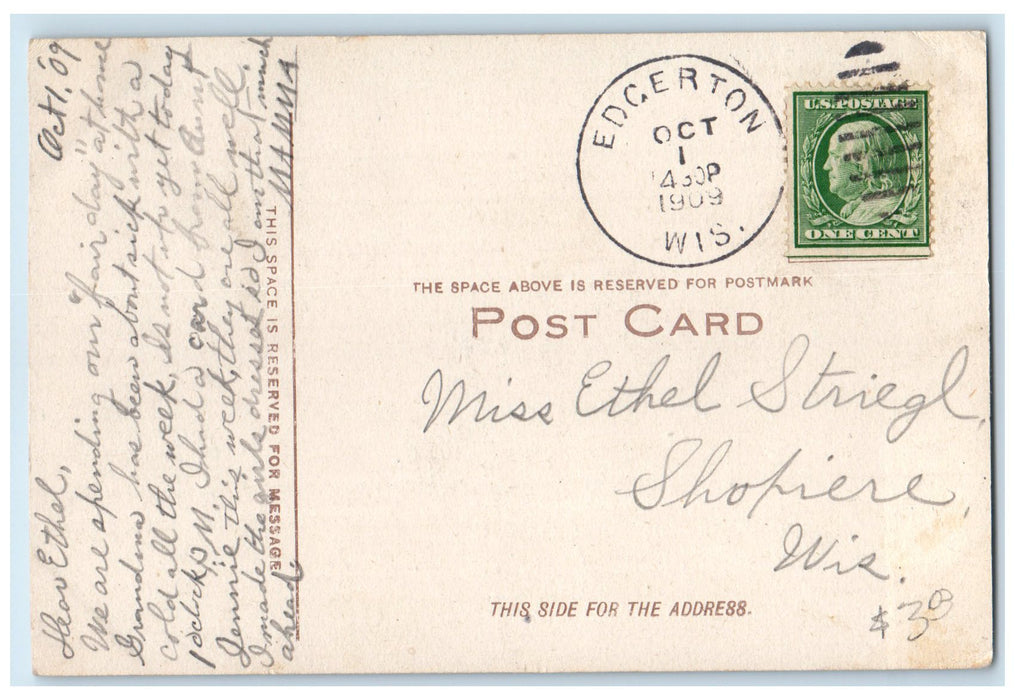 Oct 1, '09
Dear Ethel,
We are spending our "fair day" at home
Grandma has been about sick with a
cold all the week, Is not up yet today
1 oclick P M. I had a card from Aunt
Jennie this week, they are all well.
I made the girls dresses so I am that much
ahead.
MAMMA
THIS SPACE IS RESERVED FOR MESSAGE
EDGERTON
OCT
1
430P
1909
WIS.
U.S. POSTAGE
ONE CENT
THE SPACE ABOVE IS RESERVED FOR POSTMARK
POST CARD
Miss Ethel Striegl,
Shopiere,
Wis.
THIS SIDE FOR THE ADDRESS.
$3.00